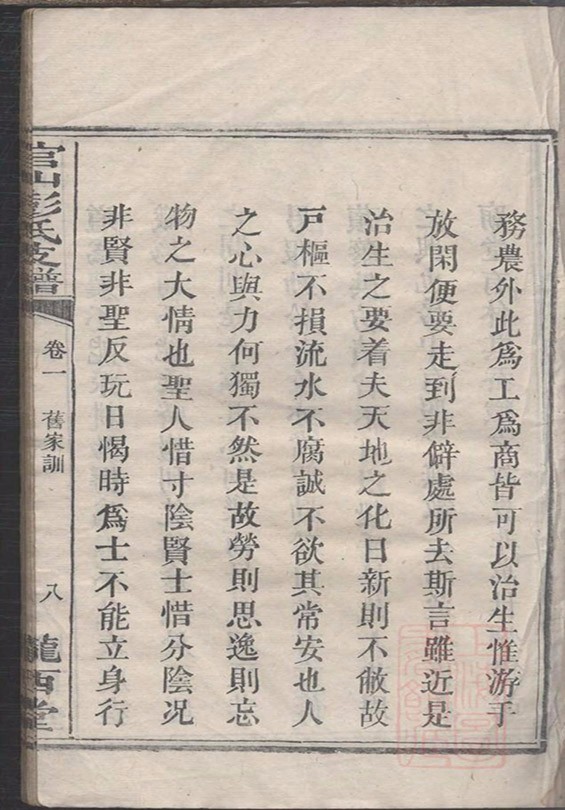 務農外此爲工爲商皆可以治生惟游手
放閑便要走到非僻處所去斯言雖近是
治生之要着夫天地之化日新則不敝故
戸樞不損流水不腐誠不欲其常安也人
之心與力何獨不然是故勞則思逸則忘
物之大情也聖人惜寸陰賢士惜分陰况
非賢非聖反玩日愒時爲士不能立身行
官山彭氏支譜
卷一
舊家訓
八
隴西堂